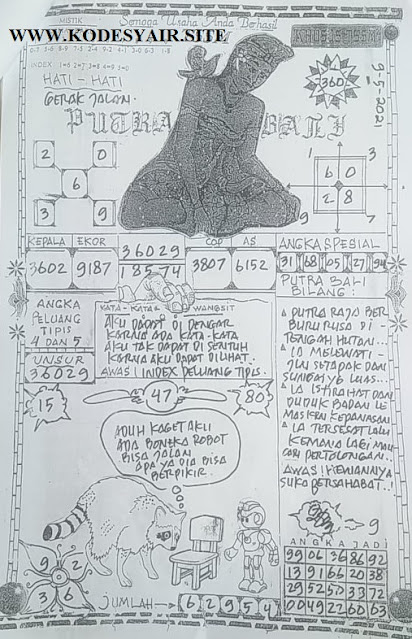 MISTIK
Semoga Usaha Anda Berhasil
WWW.KODESYAIR.SITE
INDEX : 1=6 2=7 3=8 4=9 5=0
HATI - HATI
GERAK JALAN.
360
9-5-2021
PUTRA BALI
2 0
6
3 9
1 3
6 0
2 8
9 7
KEPALA EKOR 36029 COP AS ANGKA SPESIAL
3602 9187 18574 3807 6152 31 68 05 27 94
ANGKA
PELUANG
TIPIS
4 DAN 5
UNSUR
36029
KATA - KATA WANGSIT
AKU DAPAT DI DENGAR
KARNA ADA KATA-KATA
AKU TAK DAPAT DI SENTUH
KARNA AKU DAPAT DILIHAT.
AWAS! INDEX PELUANG TIPIS.
PUTRA BALI
BILANG :
PUTRA RAJA BER
BURU RUSA DI -
TENGAH HUTAN...
IA MELEWATI -
JLN SETAPAK DAN
SUNGAI YG LUAS...
IA ISTIRAHAT DAN
DUDUK BADAN LE
MAS KEN KEPANASAN
IA TERSESAT LALU
KEMANA LAGI MAU
CARI PERTOLONGAN..
AWAS! HEWANNYA
SUKA BERSAHABAT..!
15 47 80
ADUH KAGET AKU
ADA BONEKA ROBOT
BISA JALAN
APA YA DIA BISA
BERPIKIR.
9
9 2
3 6
JUMLAH → 6 2 9 5 4
ANGKA JADI
99 06 36 86 92
13 91 66 20 38
29 52 50 33 72
00 49 22 60 63